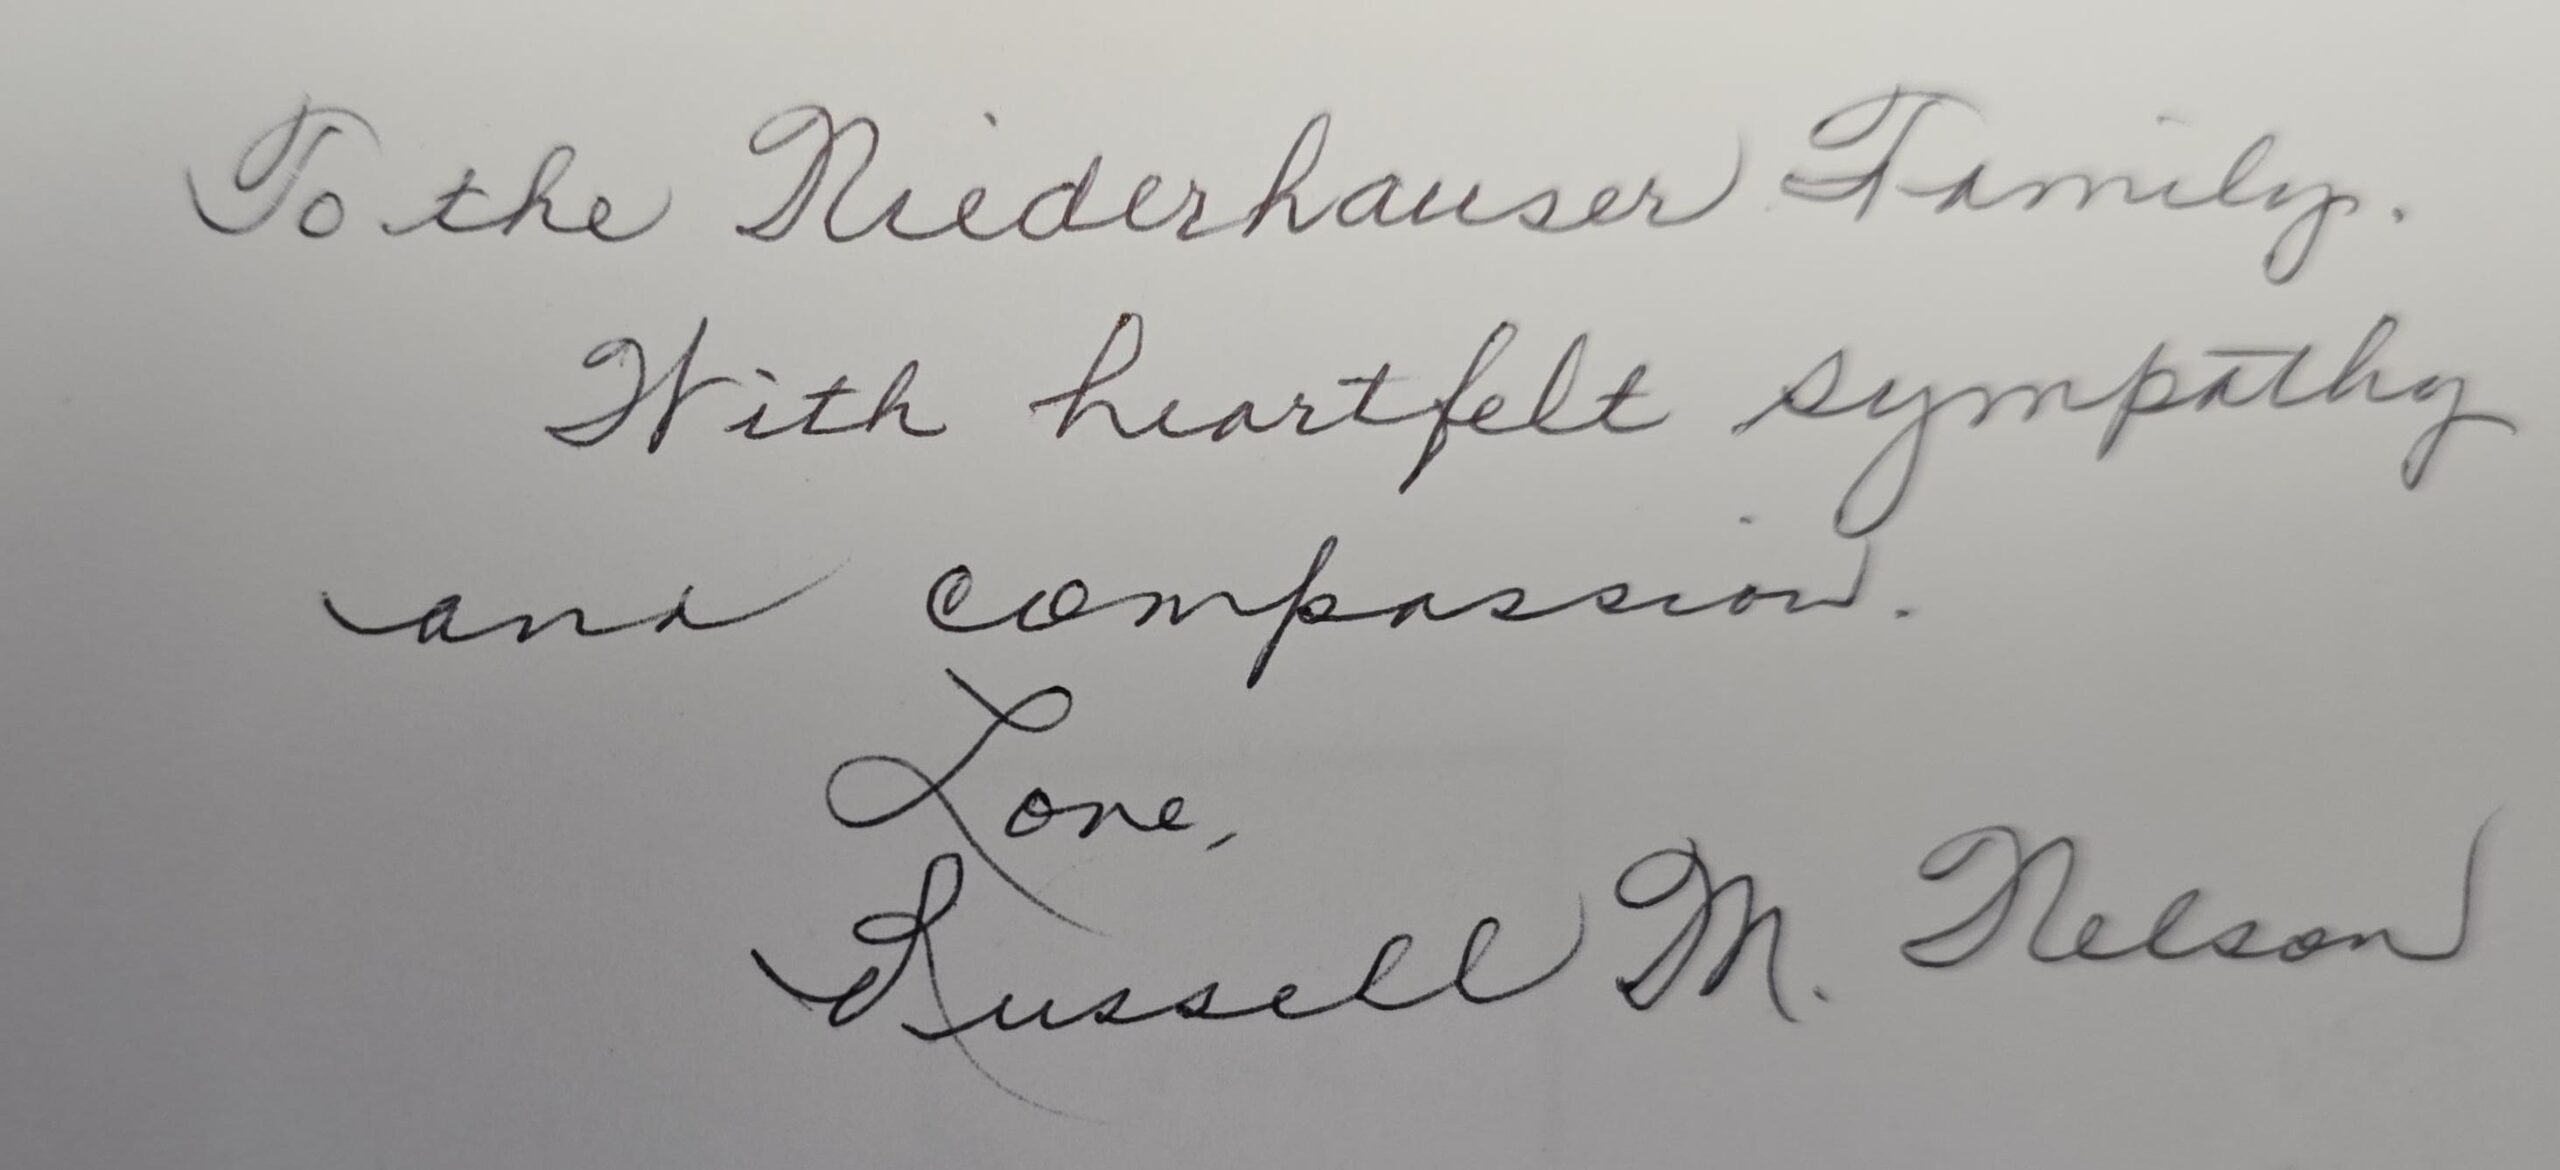 To the Niederhauser Family.
With heartfelt sympathy
and compassion.
Love,
Russell M. Nelson